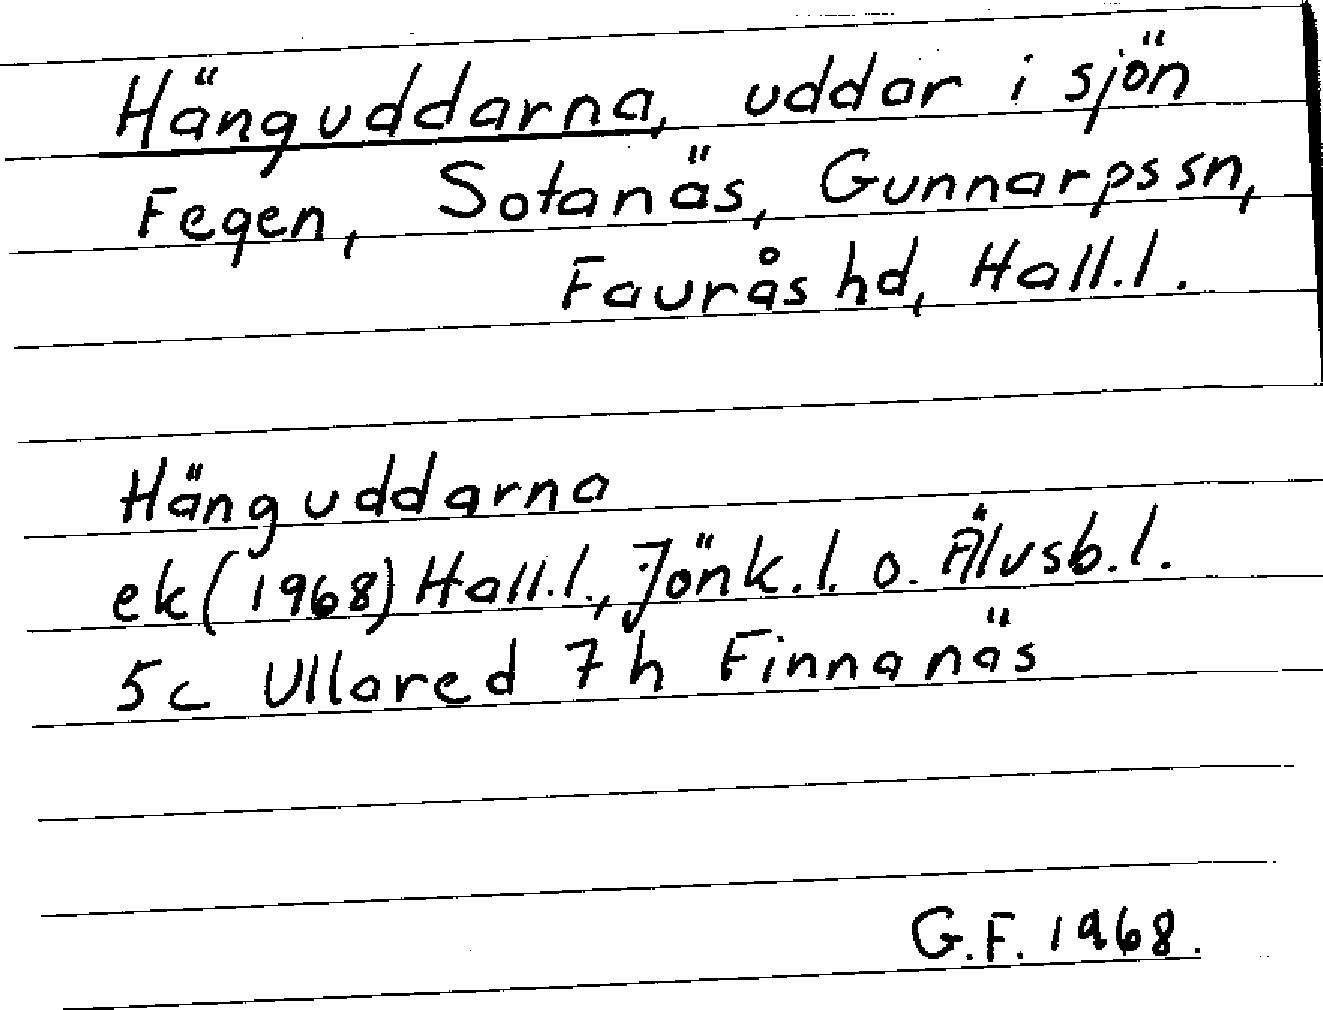 Hänguddarna, uddar i sjön
Fegen, Sotanäs, Gunnarpssn,
Faurås hd, Hall.l.
Hänguddarna
ek (1968) Hall.l., Jönk.l. o. Älvsb.l.
5c Ullared 7h Finnanäs
G.F. 1968.